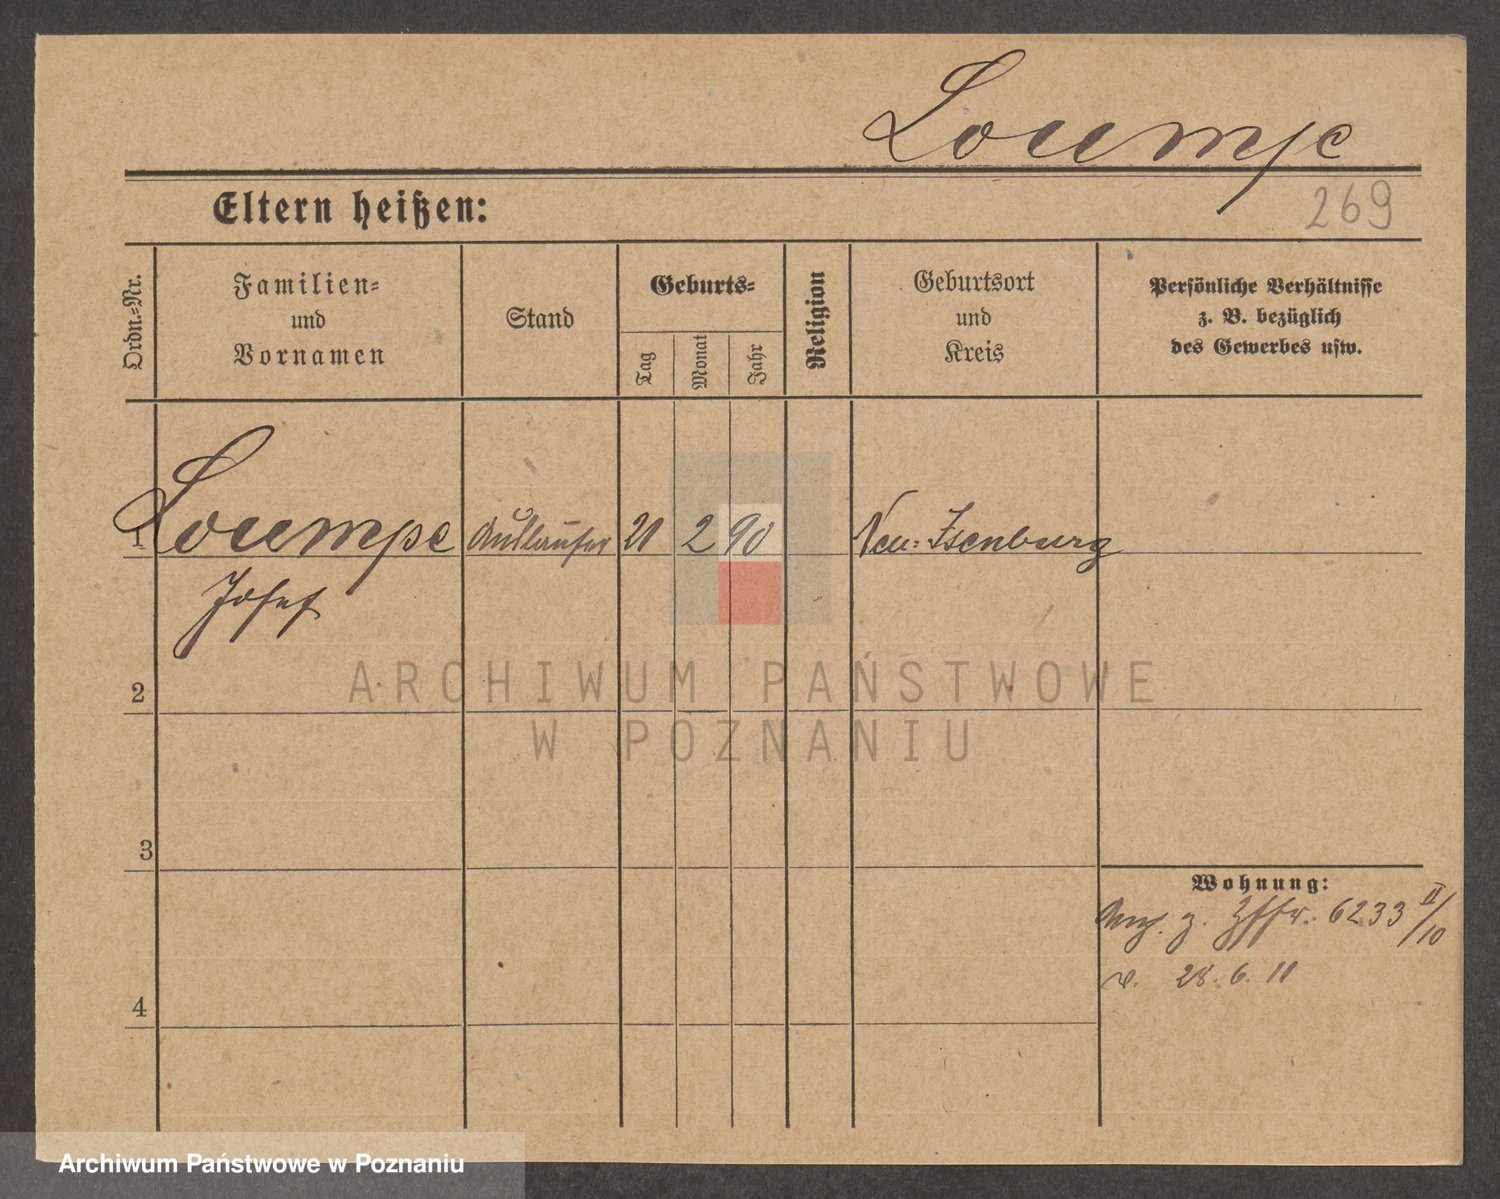 Loumpe
269
Eltern heißen:
Ordn.=Nr.
Familien=
und
Vornamen
Stand
Geburts=
Tag
Monat
Jahr
Religion
Geburtsort
und
Kreis
Persönliche Verhältnisse
z. B. bezüglich
des Gewerbes usw.
1 Loumpe Ausläufer 21 2 90 Neu=Isenburg
Josef
2
3
4
Wohnung:
z. 6233 II/10
v. 28.6.11
ARCHIWUM PAŃSTWOWE
W POZNANIU
Archiwum Państwowe w Poznaniu